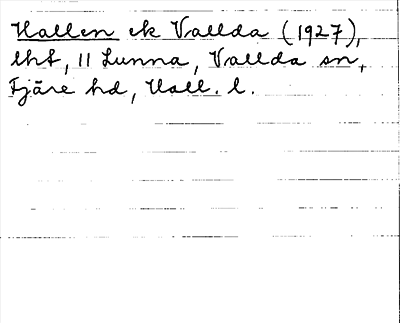 Hallen ek Vallda (1927),
lht, 11 Lunna, Vallda sn,
Fjäre hd, Hall. l.